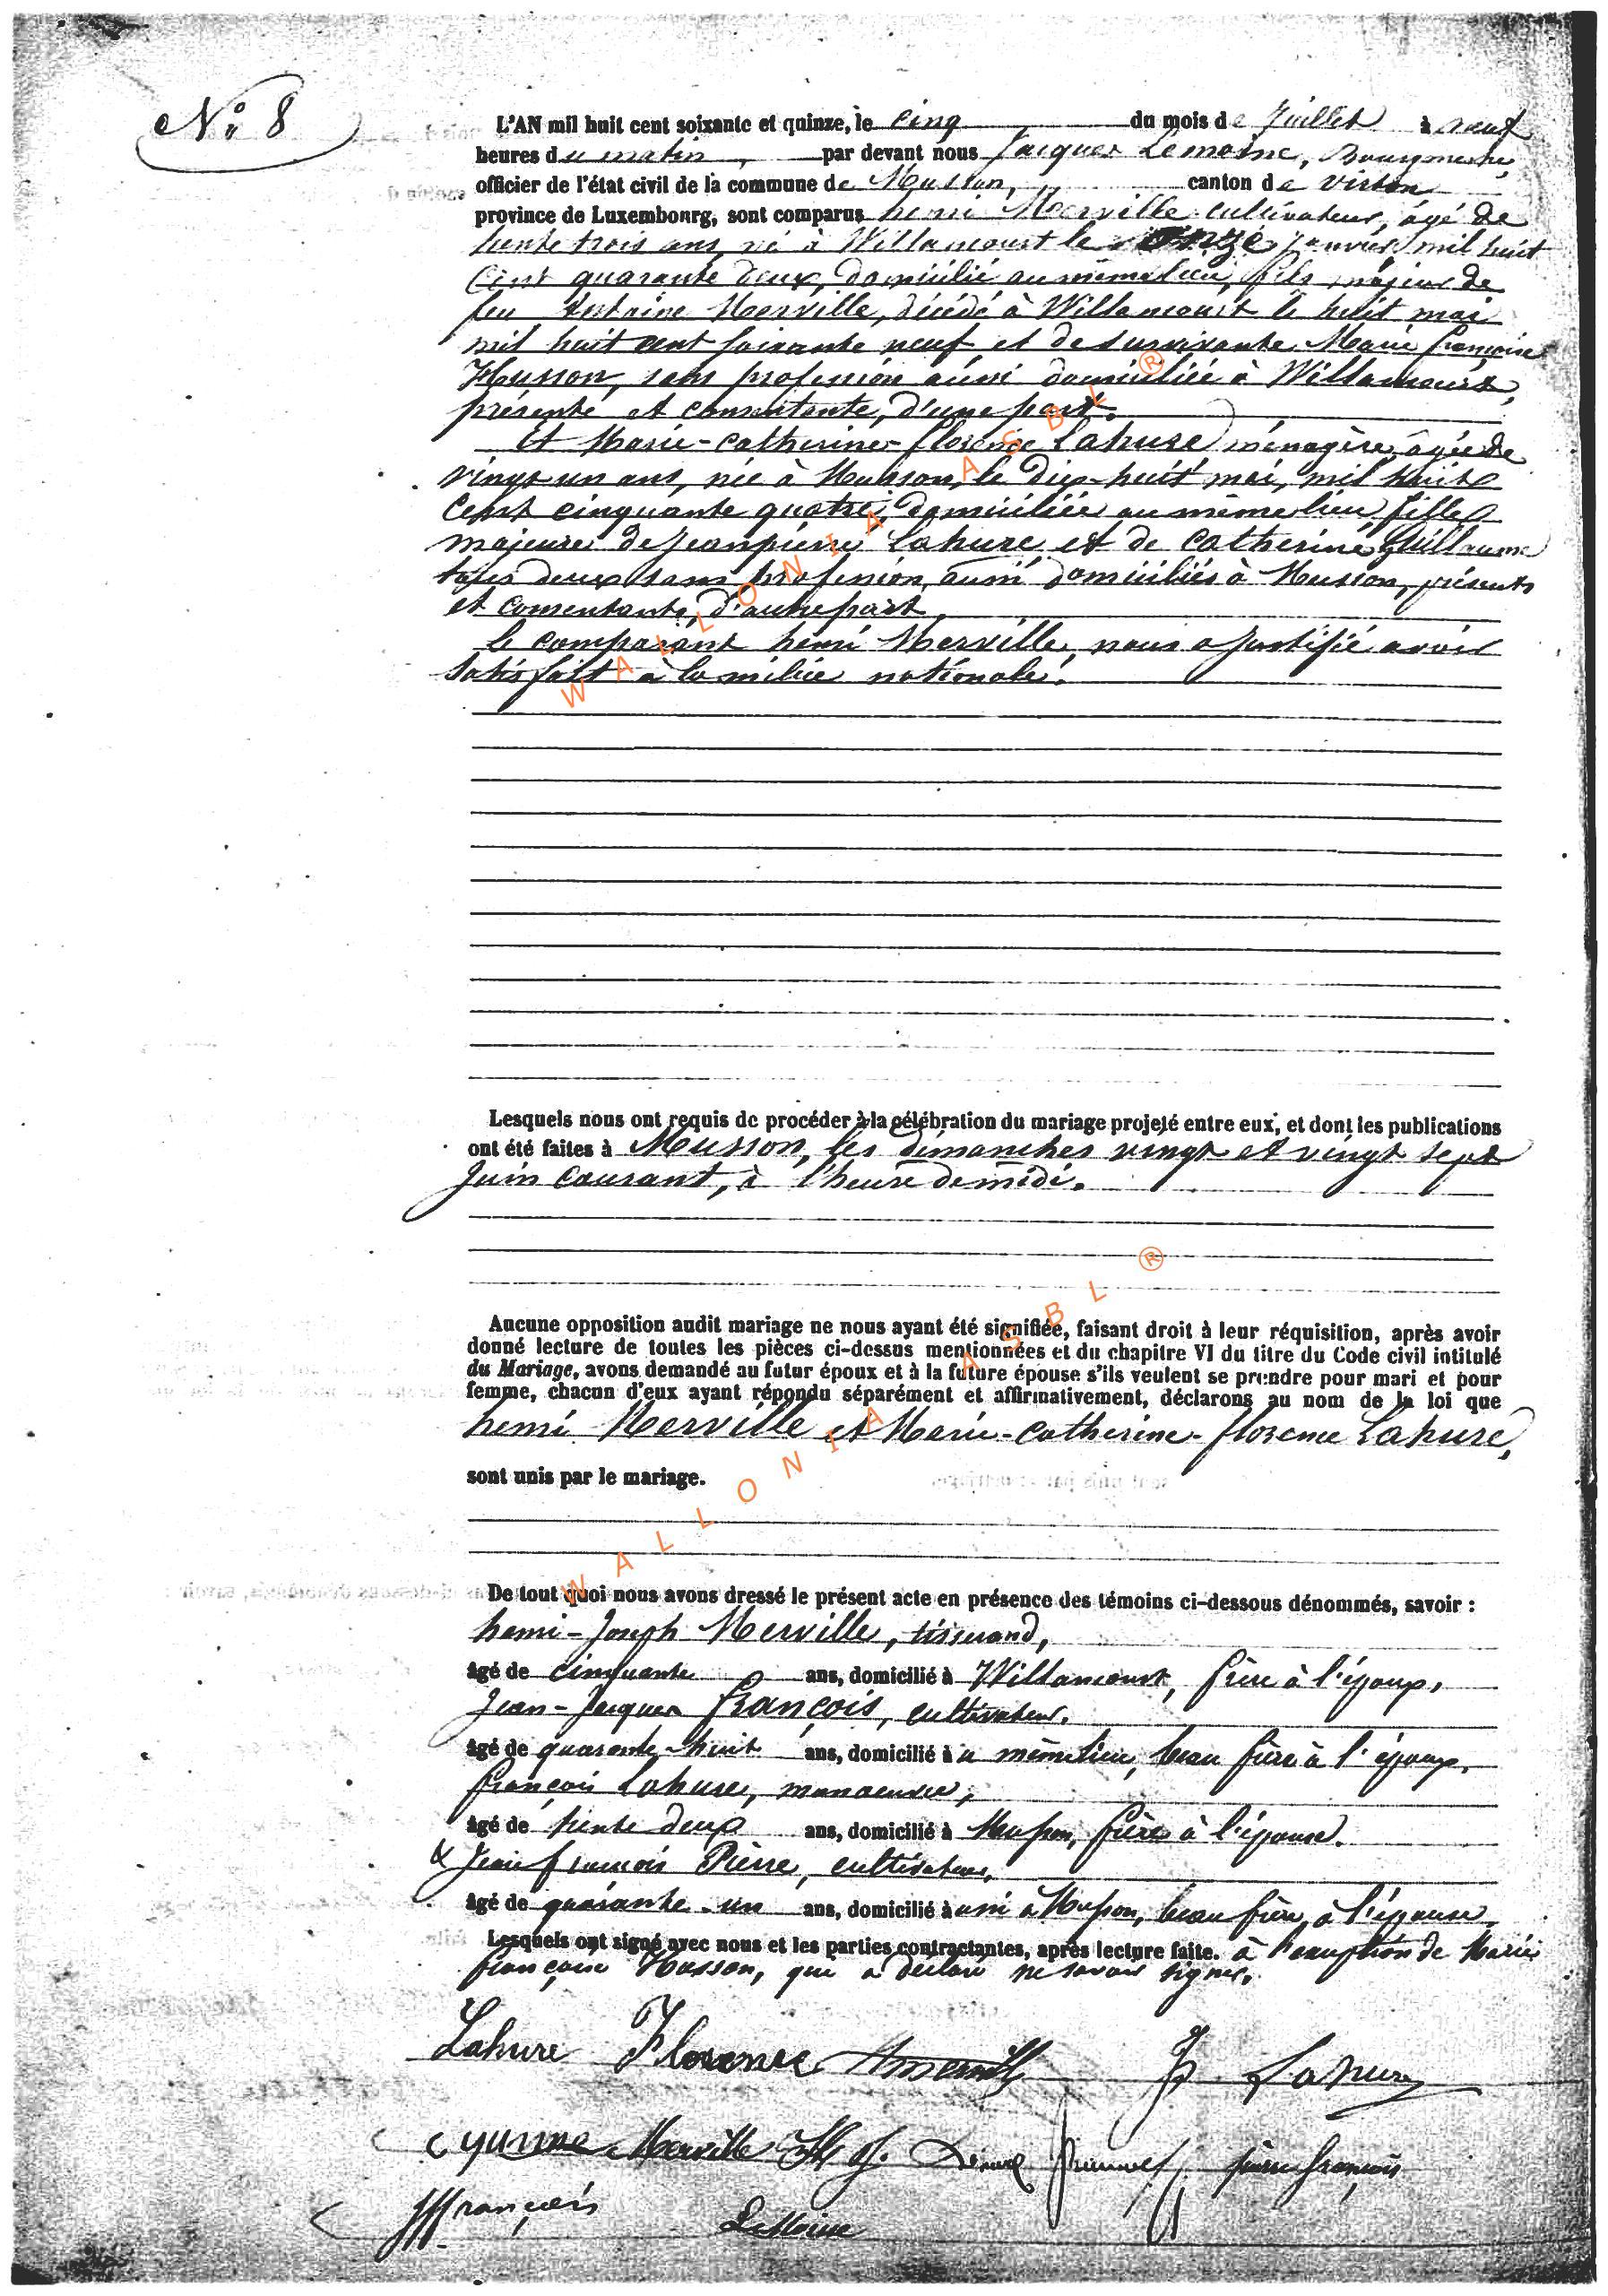 N° 8
L'AN mil huit cent soixante et quinze, le cinq du mois de Juillet à neuf
heures du matin, par devant nous Jacques Lemoine, Bourgmestre,
officier de l'état civil de la commune de Musson, canton de Virton
province de Luxembourg, sont comparus henri Merville cultivateur, âgé de
trente trois ans, né à Willancourt le onze janvier mil huit
cent quarante deux, domicilié au même lieu, fils majeur de
feu Antoine Merville, décédé à Willancourt le huit mai
mil huit cent soixante neuf et de survivante Marie françoise
Husson, sans profession aussi domiciliée à Willancourt,
présente et consentante, d'une part.
Et Marie-Catherine-florence Lahure ménagère, âgée de
vingt un ans, née à Musson, le dix-huit mai, mil huit
cent cinquante quatre, domiciliée au même lieu, fille
majeure de Jeanpierre Lahure et de Catherine Guillaume
tous deux sans profession, aussi domiciliés à Musson, présents
et consentants, d'autre part.
le comparant henri Merville, nous a justifié avoir
satisfait à la milice nationale.
Lesquels nous ont requis de procéder à la célébration du mariage projeté entre eux, et dont les publications
ont été faites à Musson, les dimanches vingt et vingt sept
Juin courant, à l'heure de midi.
Aucune opposition audit mariage ne nous ayant été signifiée, faisant droit à leur réquisition, après avoir
donné lecture de toutes les pièces ci-dessus mentionnées et du chapitre VI du titre du Code civil intitulé
du Mariage, avons demandé au futur époux et à la future épouse s'ils veulent se prendre pour mari et pour
femme, chacun d'eux ayant répondu séparément et affirmativement, déclarons au nom de la loi que
henri Merville et Marie-Catherine-florence Lahure,
sont unis par le mariage.
De tout quoi nous avons dressé le présent acte en présence des témoins ci-dessous dénommés, savoir :
henri-Joseph Merville, tisserand,
âgé de cinquante ans, domicilié à Willancourt, frère à l'époux,
Jean-Jacques françois, cultivateur,
âgé de quarante-huit ans, domicilié au même lieu, beau frère à l'époux,
françois Lahure, manoeuvre,
âgé de trente deux ans, domicilié à Musson, frère à l'épouse.
& Jean françois Pierre, cultivateur,
âgé de quarante-un ans, domicilié aussi à Musson, beau frère à l'épouse.
Lesquels ont signé avec nous et les parties contractantes, après lecture faite. à l'exception de Marie
françoise Husson, qui a déclaré ne savoir signer.
Lahure Florence JP Lahure
Merville pierre françois
JJ françois Lemoine
WALLONIA ASBL ®
WALLONIA ASBL ®